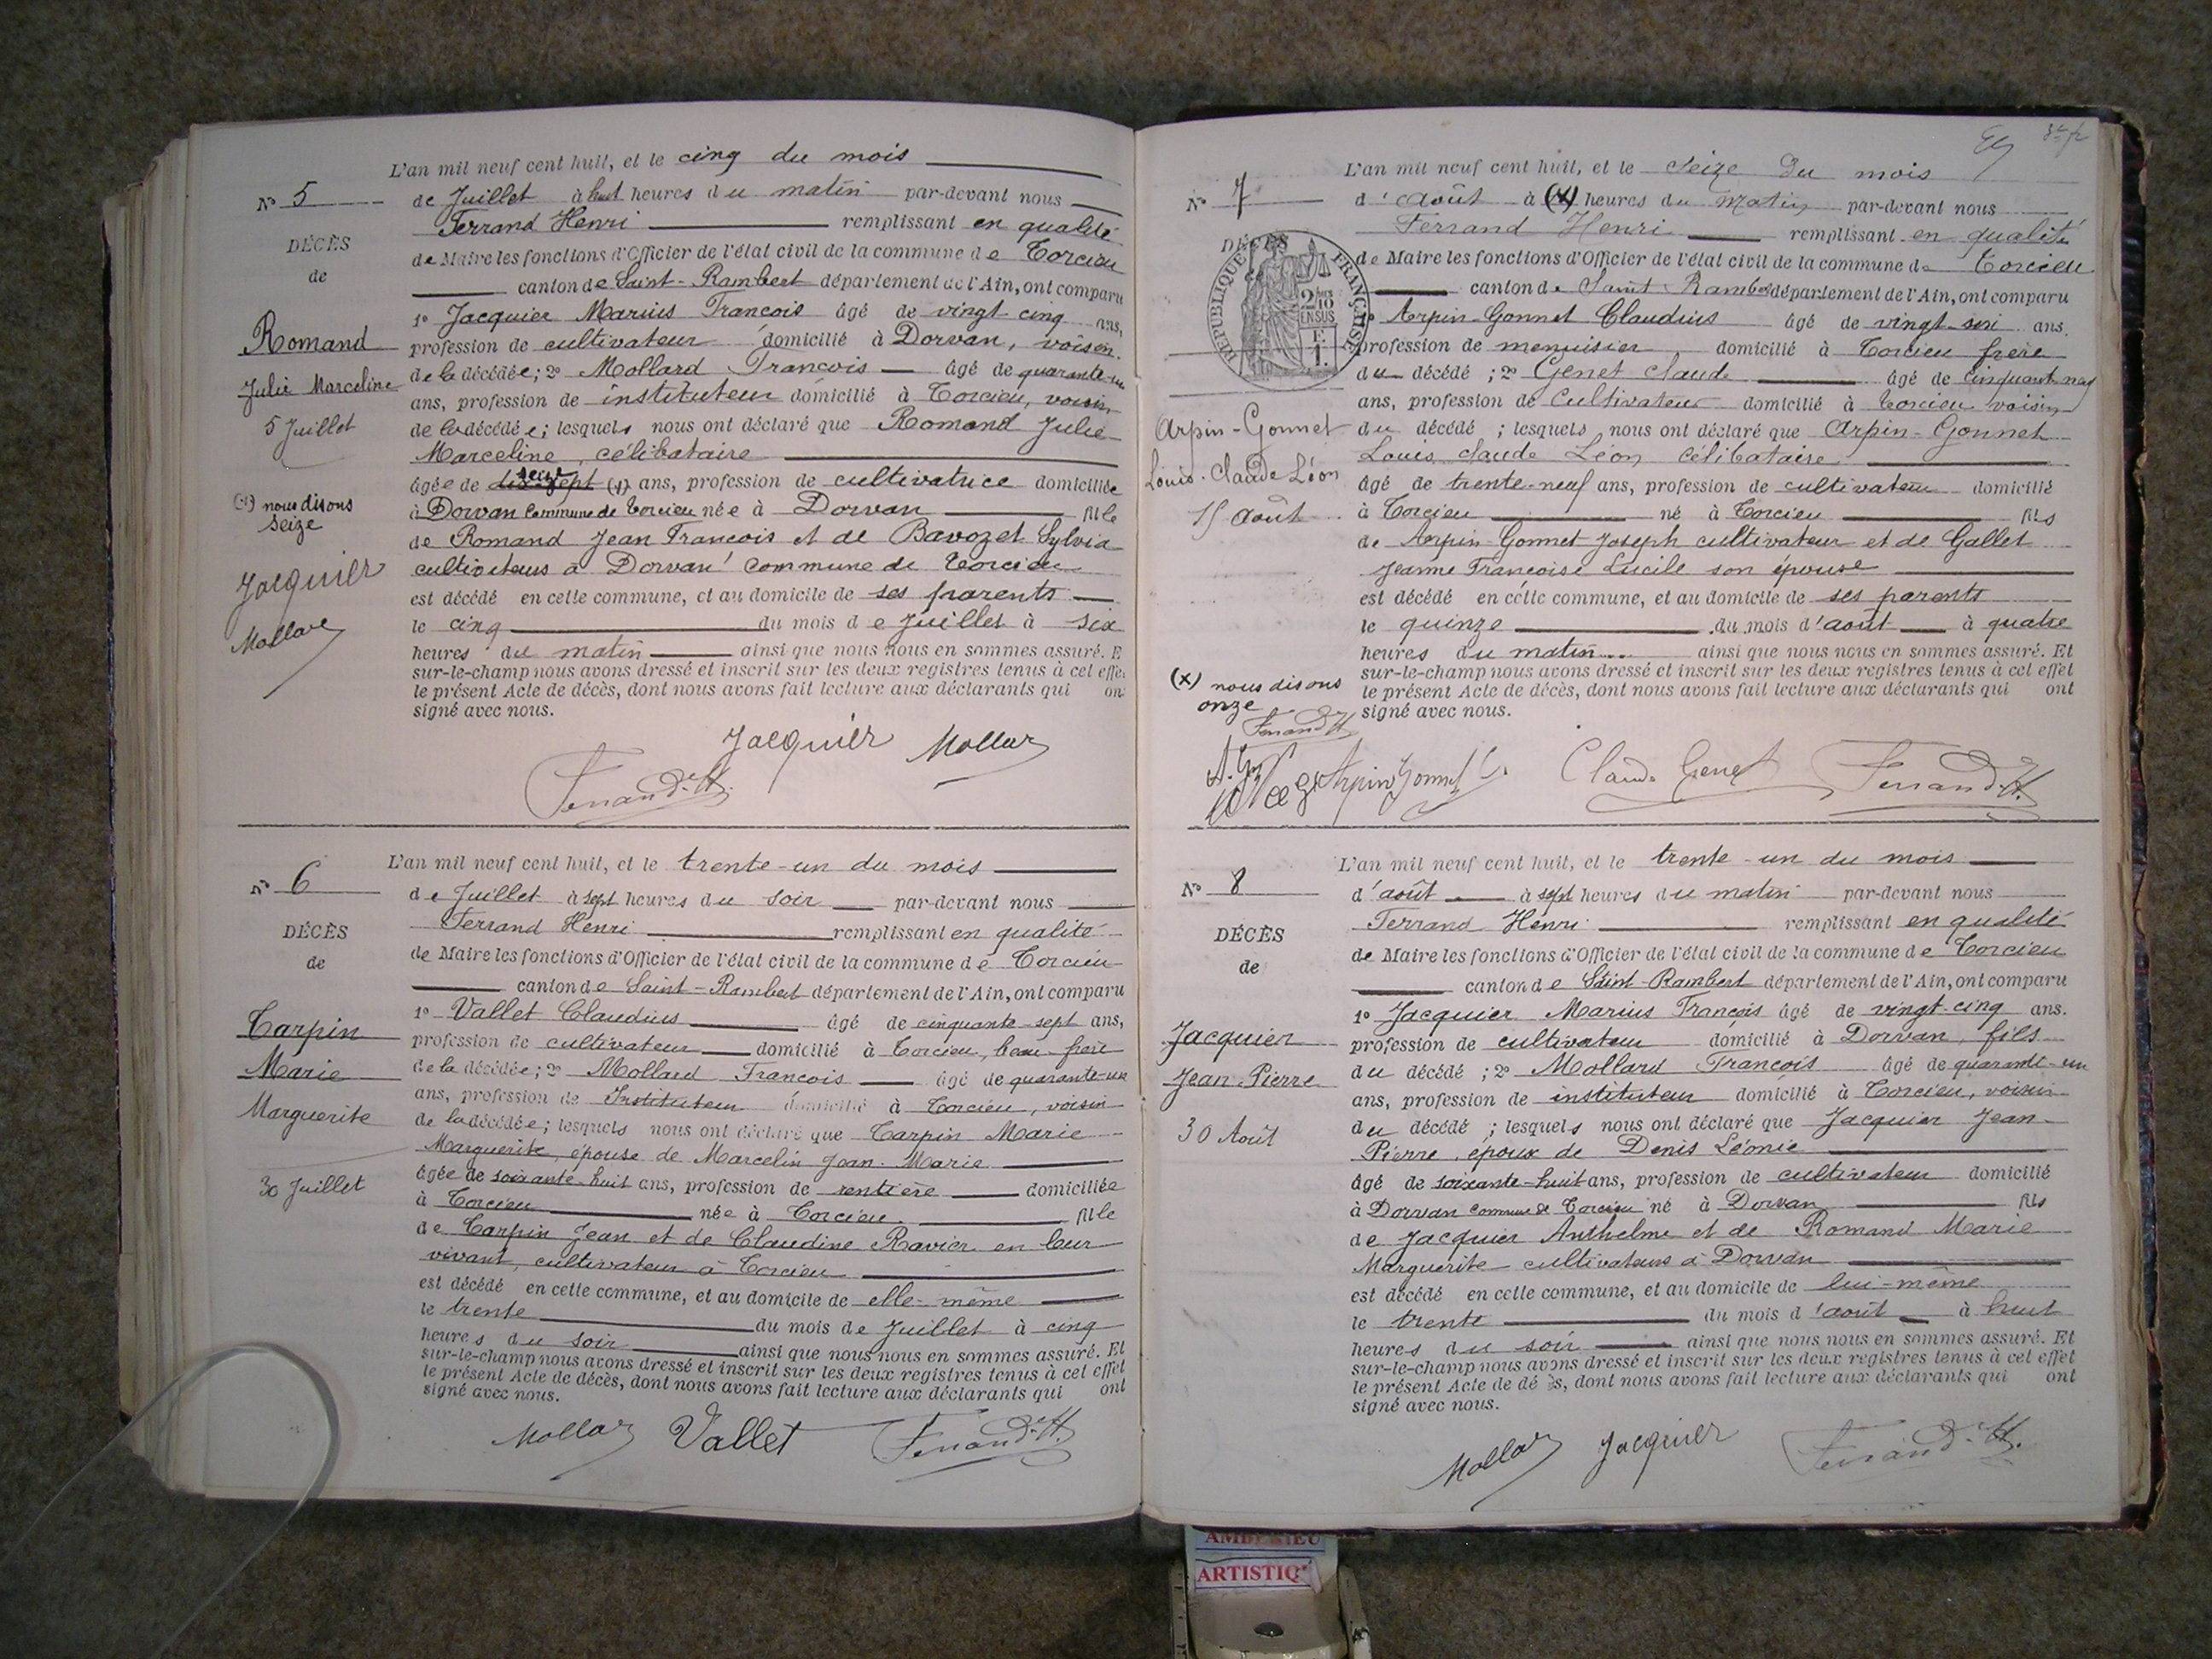 L'an mil neuf cent huit, et le cinq du mois
N° 5
de Juillet à huit heures du matin par-devant nous
Ferrand Henri remplissant en qualité
DÉCÈS
de Maire les fonctions d'Officier de l'état civil de la commune de Torcieu
de
canton de Saint-Rambert département de l'Ain, ont comparu
1° Jacquier Marius Francois âgé de vingt cinq ans,
Romand
profession de cultivateur domicilié à Dorvan, voisin
Julie Marceline
de la décédée; 2° Mollard Francois âgé de quarante-un
ans, profession de instituteur domicilié à Torcieu, voisin
5 Juillet
de la décédée; lesquels nous ont déclaré que Romand Julie
Marceline, célibataire
âgée de dix sept seize (1) ans, profession de cultivatrice domiciliée
(1) nous disons
seize
à Dorvan Commune de Torcieu née à Dorvan fille
de Romand Jean Francois et de Bavozet Sylvia
cultivateurs à Dorvan commune de Torcieu
Jacquier
est décédé en cette commune, et au domicile de ses parents
Mollard
le cinq du mois de Juillet à six
heures du matin ainsi que nous nous en sommes assuré. E
sur-le-champ nous avons dressé et inscrit sur les deux registres tenus à cet effe
le présent Acte de décès, dont nous avons fait lecture aux déclarants qui on
signé avec nous.
Jacquier Mollard
Ferrand H.
L'an mil neuf cent huit, et le trente-un du mois
N° 6
de Juillet à sept heures du soir par-devant nous
Ferrand Henri remplissant en qualité
DÉCÈS
de Maire les fonctions d'Officier de l'état civil de la commune de Torcieu
de
canton de Saint-Rambert département de l'Ain, ont comparu
1° Vallet Claudius âgé de cinquante-sept ans,
Carpin
profession de cultivateur domicilié à Torcieu, beau-frère
Marie
de la décédée; 2° Mollard Francois âgé de quarante-un
ans, profession de Instituteur domicilié à Torcieu, voisin
Marguerite
de la décédée; lesquels nous ont déclaré que Carpin Marie
Marguerite, épouse de Marcelin Jean-Marie
30 Juillet
âgée de soixante-huit ans, profession de rentière domiciliée
à Torcieu née à Torcieu fille
de Carpin Jean et de Claudine Ravier en leur
vivant, cultivateurs à Torcieu
est décédé en cette commune, et au domicile de elle-même
le trente du mois de Juillet à cinq
heures du soir ainsi que nous nous en sommes assuré. Et
sur-le-champ nous avons dressé et inscrit sur les deux registres tenus à cet effet
le présent Acte de décès, dont nous avons fait lecture aux déclarants qui ont
signé avec nous.
Mollard Vallet Ferrand H.
L'an mil neuf cent huit, et le seize du mois
N° 7
d'août à (x) heures du matin par-devant nous
Ferrand Henri remplissant en qualité
DÉCÈS
RÉPUBLIQUE FRANÇAISE
de Maire les fonctions d'Officier de l'état civil de la commune de Torcieu
canton de Saint Rambert département de l'Ain, ont comparu
Arpin-Gonnet Claudius âgé de vingt-six ans.
profession de menuisier domicilié à Torcieu frère
du décédé ; 2° Genet Claude âgé de cinquante neuf
ans, profession de Cultivateur domicilié à Torcieu voisin
Arpin-Gonnet
du décédé ; lesquels nous ont déclaré que Arpin-Gonnet
Louis Claude Léon célibataire
Louis-Claude Léon
âgé de trente-neuf ans, profession de cultivateur domicilié
15 août
à Torcieu né à Torcieu fils
de Arpin-Gonnet Joseph cultivateur et de Gallet
Jeanne Francoise Lucile son épouse
est décédé en cette commune, et au domicile de ses parents
le quinze du mois d'août à quatre
heures du matin ainsi que nous nous en sommes assuré. Et
sur-le-champ nous avons dressé et inscrit sur les deux registres tenus à cet effet
(x) nous disons
onze
le présent Acte de décès, dont nous avons fait lecture aux déclarants qui ont
signé avec nous.
Ferrand H
Arpin Gonnet C. Claude Genet Ferrand H.
L'an mil neuf cent huit, et le trente-un du mois
N° 8
d'août à sept heures du matin par-devant nous
Ferrand Henri remplissant en qualité
DÉCÈS
de Maire les fonctions d'Officier de l'état civil de la commune de Torcieu
de
canton de Saint-Rambert département de l'Ain, ont comparu
1° Jacquier Marius Francois âgé de vingt-cinq ans.
Jacquier
profession de cultivateur domicilié à Dorvan, fils
Jean-Pierre
du décédé ; 2° Mollard Francois âgé de quarante-un
ans, profession de instituteur domicilié à Torcieu, voisin
30 Août
du décédé ; lesquels nous ont déclaré que Jacquier Jean-
Pierre, époux de Denis Léonie
âgé de soixante-huit ans, profession de cultivateur domicilié
à Dorvan commune de Torcieu né à Dorvan fils
de Jacquier Anthelme et de Romand Marie
Marguerite cultivateurs à Dorvan
est décédé en cette commune, et au domicile de lui-même
le trente du mois d'août à huit
heures du soir ainsi que nous nous en sommes assuré. Et
sur-le-champ nous avons dressé et inscrit sur les deux registres tenus à cet effet
le présent Acte de dé ès, dont nous avons fait lecture aux déclarants qui ont
signé avec nous.
Mollard Jacquier Ferrand H.
AMBERIEU
ARTISTIQ